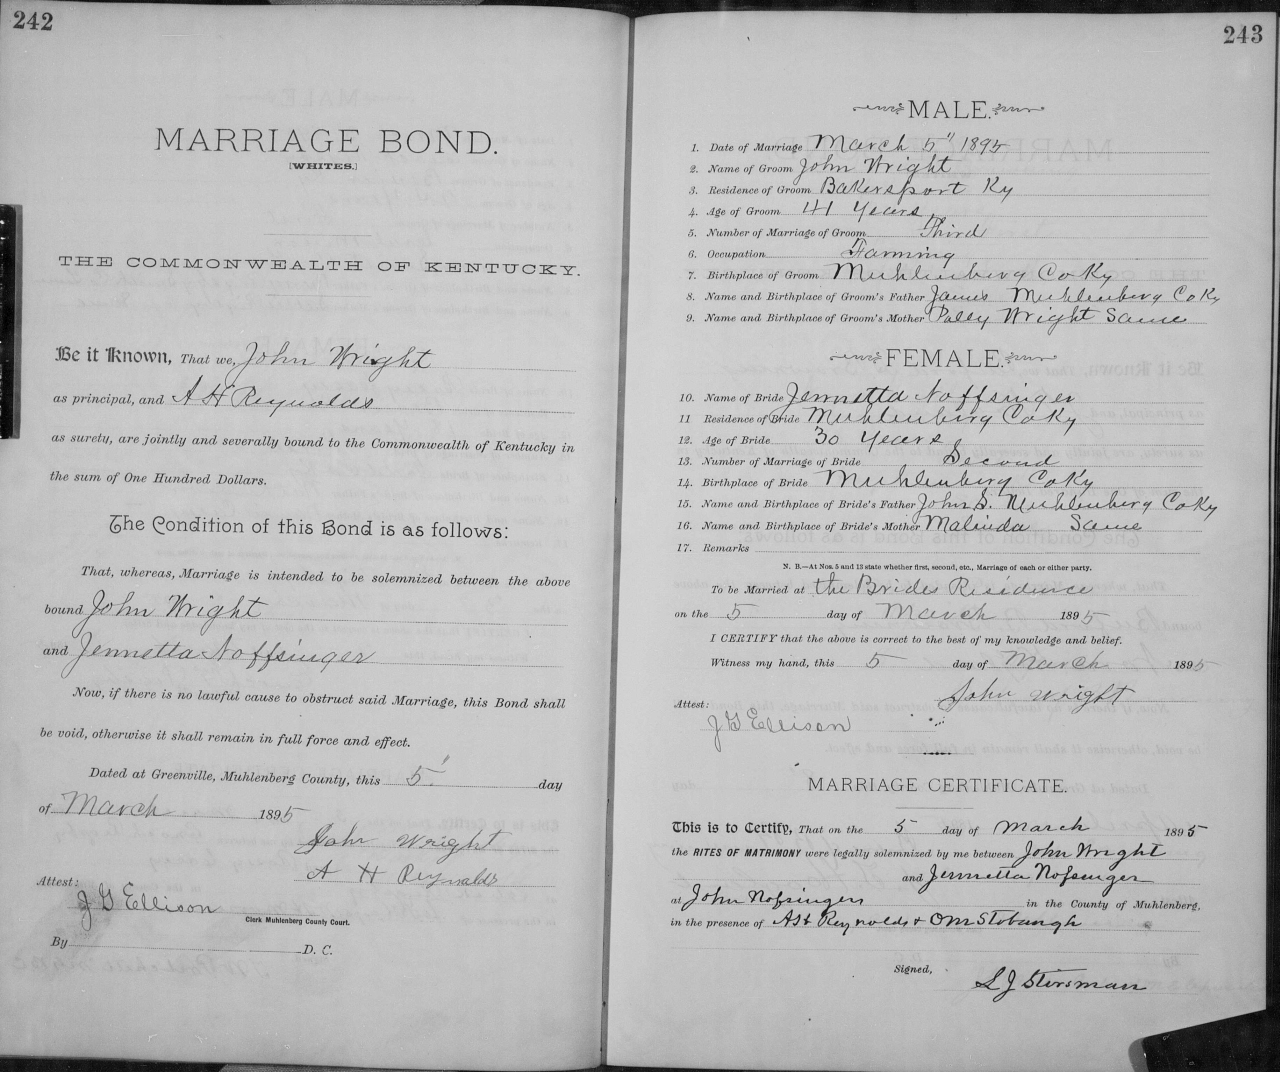 242
MARRIAGE BOND.
[WHITES.]
THE COMMONWEALTH OF KENTUCKY.
Be it Known, That we, John Wright
as principal, and A H Reynolds
as surety, are jointly and severally bound to the Commonwealth of Kentucky in
the sum of One Hundred Dollars.
The Condition of this Bond is as follows:
That, whereas, Marriage is intended to be solemnized between the above
bound John Wright
and Jennetta Noffsinger
Now, if there is no lawful cause to obstruct said Marriage, this Bond shall
be void, otherwise it shall remain in full force and effect.
Dated at Greenville, Muhlenberg County, this 5' day
of March 1895
John Wright
A H Reynolds
Attest:
J G Ellison
Clerk Muhlenberg County Court.
By D. C.
243
MALE.
1. Date of Marriage March 5" 1895
2. Name of Groom John Wright
3. Residence of Groom Bakersport Ky
4. Age of Groom 41 Years
5. Number of Marriage of Groom Third
6. Occupation Farming
7. Birthplace of Groom Muhlenberg Co Ky
8. Name and Birthplace of Groom's Father James Muhlenberg Co Ky
9. Name and Birthplace of Groom's Mother Polly Wright Same
FEMALE.
10. Name of Bride Jennetta Noffsinger
11 Residence of Bride Muhlenberg Co Ky
12. Age of Bride 30 Years
13. Number of Marriage of Bride Second
14. Birthplace of Bride Muhlenberg Co Ky
15. Name and Birthplace of Bride's Father John S. Muhlenberg Co Ky
16. Name and Birthplace of Bride's Mother Malinda Same
17. Remarks
N. B.—At Nos. 5 and 13 state whether first, second, etc., Marriage of each or either party.
To be Married at the Brides Residence
on the 5 day of March 1895
I CERTIFY that the above is correct to the best of my knowledge and belief.
Witness my hand, this 5 day of March 1895
John Wright
Attest:
J G Ellison
MARRIAGE CERTIFICATE.
This is to Certify, That on the 5 day of March 1895
the RITES OF MATRIMONY were legally solemnized by me between John Wright
and Jennetta Nofsinger
at John Nofsingers in the County of Muhlenberg,
in the presence of A H Reynolds & O M Stobaugh
Signed,
L J Stirsman